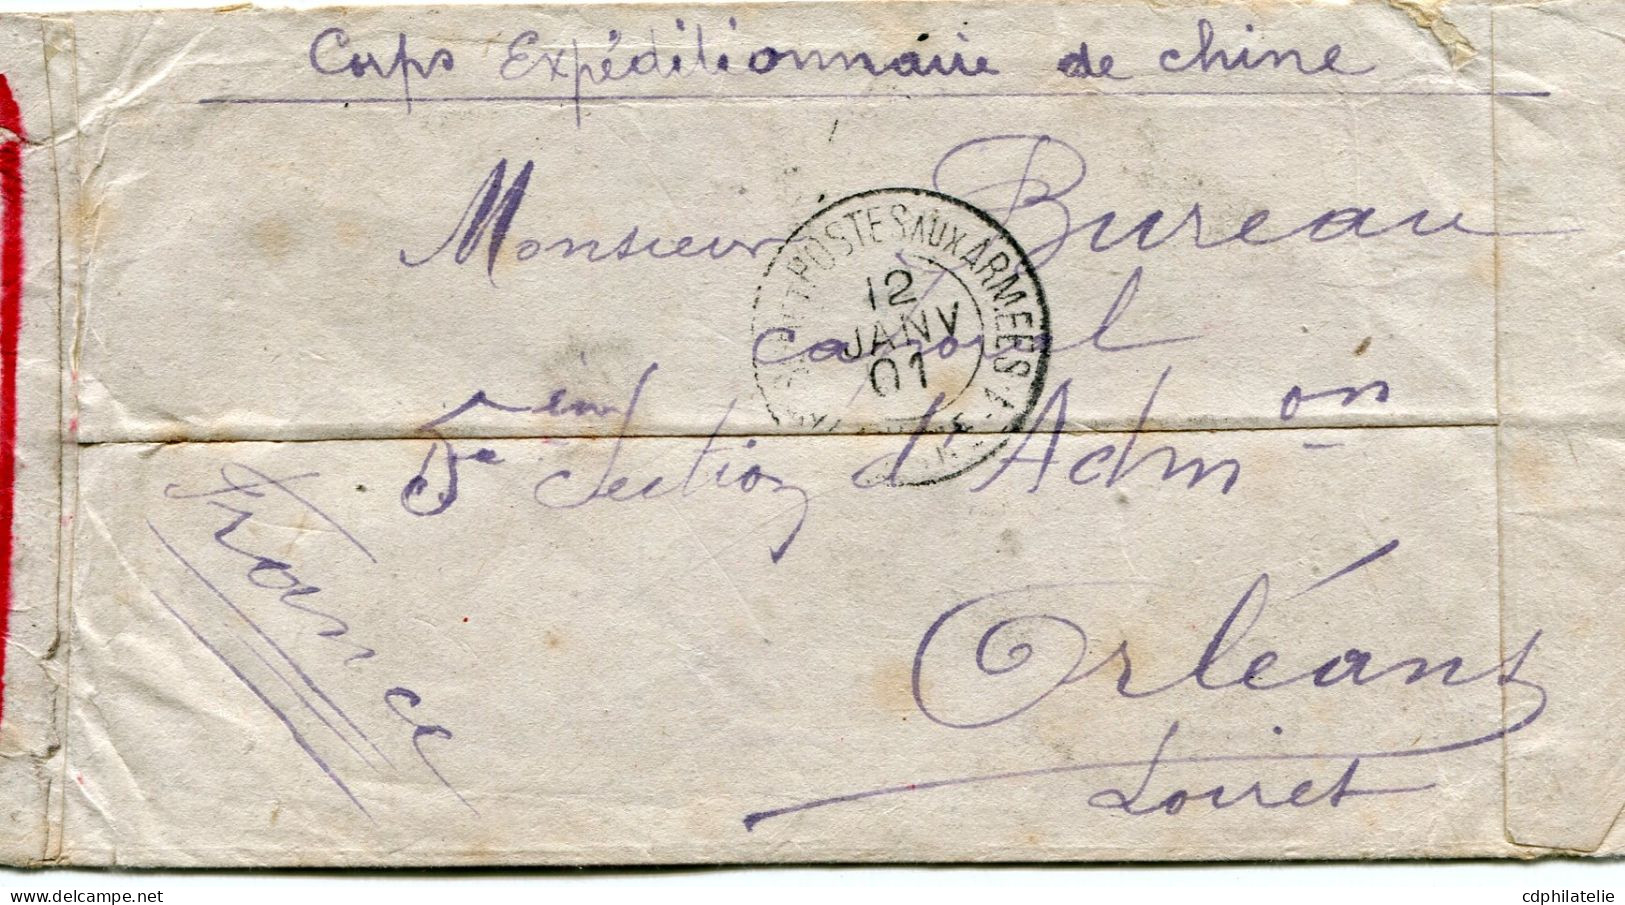 Corps Expéditionnaire de Chine
Monsieur Bureau
caporal
5eme Section d'Admon
France
Orléans
Loiret
POSTES AUX ARMEES
12
JANV
01
cdphilatelie